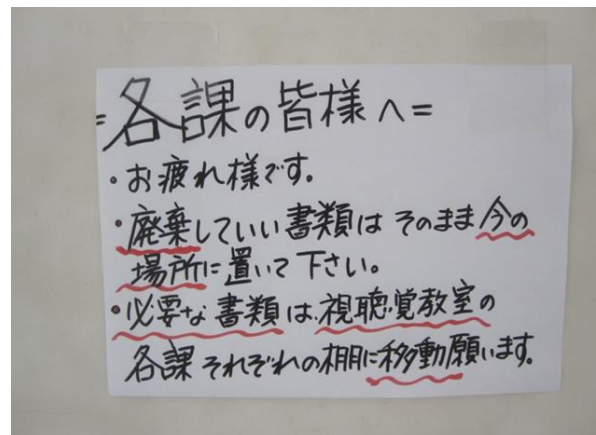 =各課の皆様へ=
・お疲れ様です。
・廃棄していい書類はそのまま今の
場所に置いて下さい。
・必要な書類は、視聴覚教室の
各課それぞれの棚に移動願います。